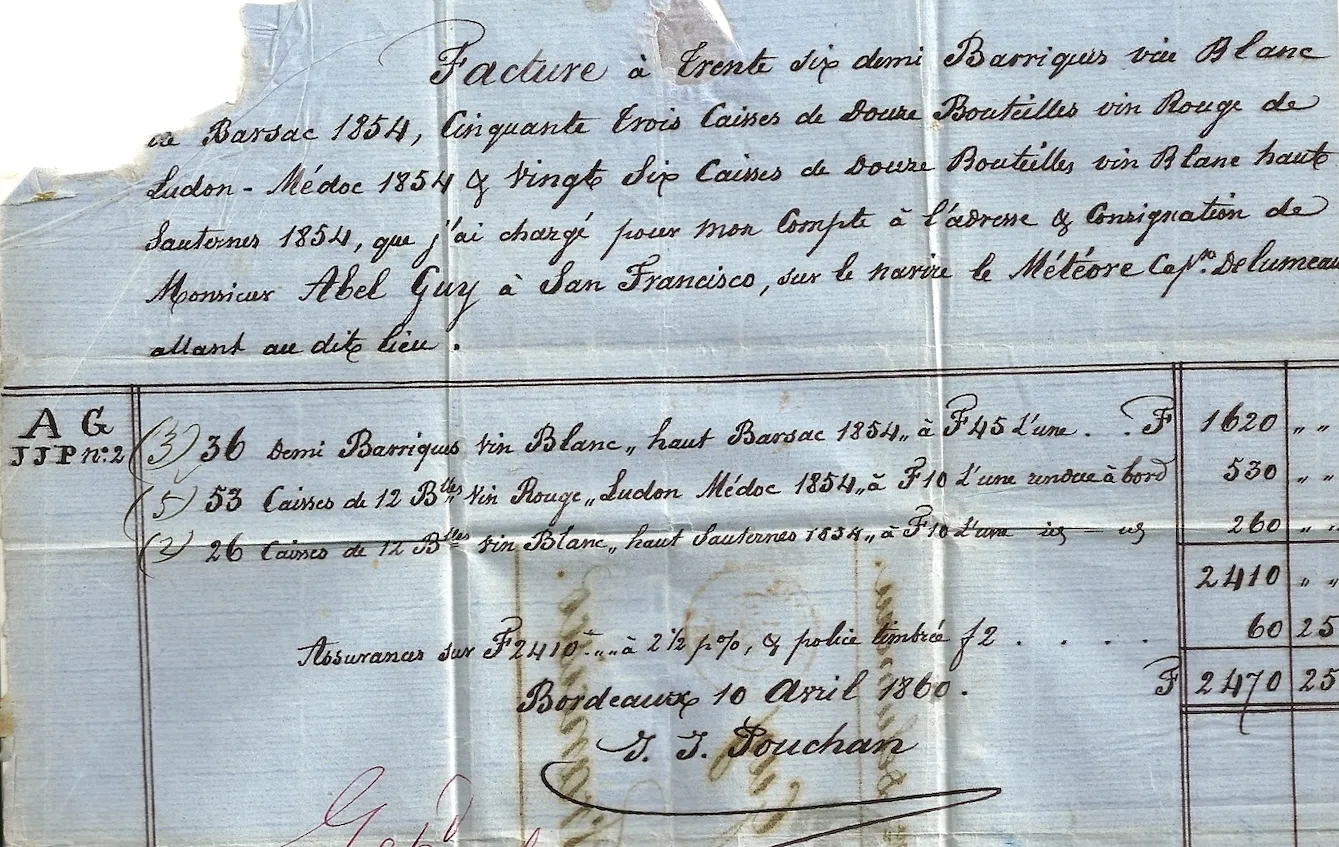 Facture à Trente Six demi Barriques vin Blanc
de Barsac 1854, Cinquante Trois Caisses de Douze Bouteilles vin Rouge de
Ludon - Médoc 1854 & Vingt Six Caisses de Douze Bouteilles vin Blanc haut
Sauternes 1854, que j'ai chargé pour mon Compte à l'adresse & Consignation de
Monsieur Abel Guy à San Francisco, sur le navire le Météore Capne. Delumeau
allant au dit lieu.
A G
JJP n:2
(3) 36 Demi Barriques Vin Blanc „ haut Barsac 1854 „ à F 45 L'une . . F 1620 „ „
(5) 53 Caisses de 12 Blles Vin Rouge „ Ludon Médoc 1854 „ à F 10 L'une rendue à bord 530 „ „
(2) 26 Caisses de 12 Blles Vin Blanc „ haut Sauternes 1854 „ à F 10 L'une id — id 260 „ „
2410 „ „
Assurances sur F 2410 „ à 2 1/2 p%, & police timbrée f 2 . . . . 60 25
F 2470 25
Bordeaux 10 Avril 1860.
J. J. Pouchan